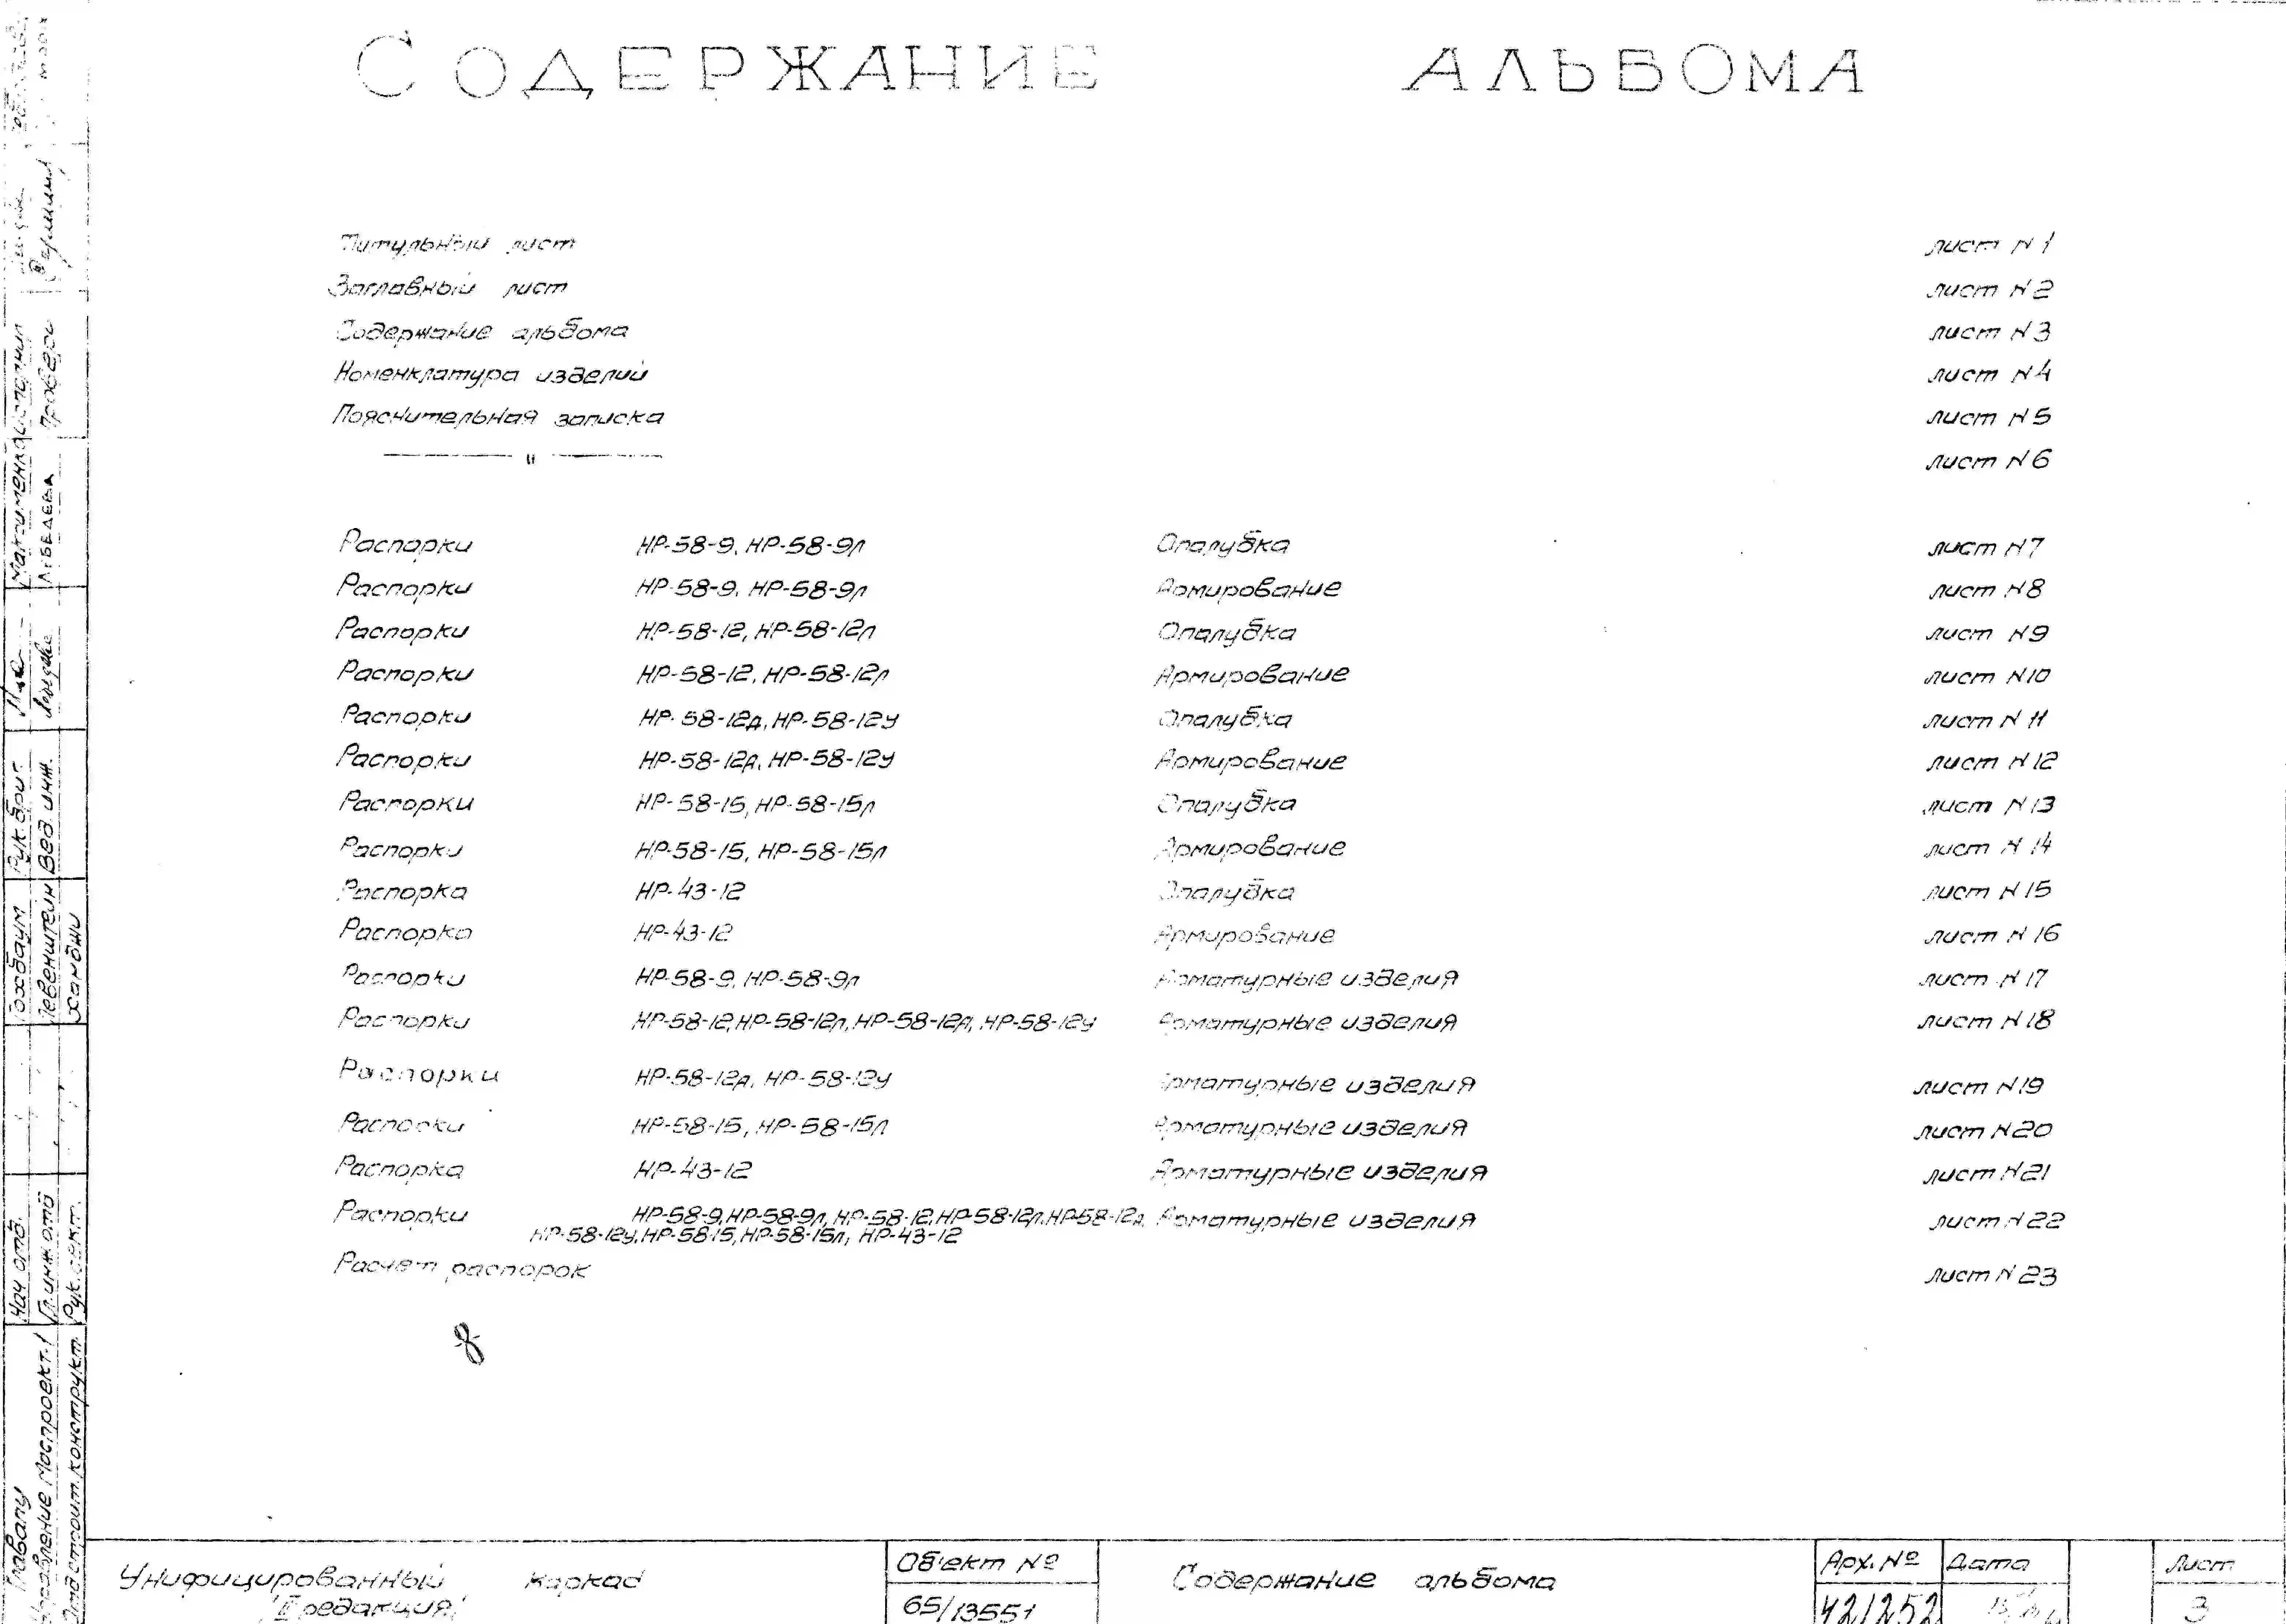 СОДЕРЖАНИЕ АЛЬБОМА
Титульный лист лист N 1
Заглавный лист лист N 2
Содержание альбома лист N 3
Номенклатура изделий лист N 4
Пояснительная записка лист N 5
—— " —— лист N 6
Распорки НР-58-9, НР-58-9л Опалубка лист N 7
Распорки НР-58-9, НР-58-9л Армирование лист N 8
Распорки НР-58-12, НР-58-12л Опалубка лист N 9
Распорки НР-58-12, НР-58-12л Армирование лист N 10
Распорки НР-58-12д, НР-58-12у Опалубка лист N 11
Распорки НР-58-12д, НР-58-12у Армирование лист N 12
Распорки НР-58-15, НР-58-15л Опалубка лист N 13
Распорки НР-58-15, НР-58-15л Армирование лист N 14
Распорка НР-43-12 Опалубка лист N 15
Распорка НР-43-12 Армирование лист N 16
Распорки НР-58-9, НР-58-9л Арматурные изделия лист N 17
Распорки НР-58-12, НР-58-12л, НР-58-12д, НР-58-12у Арматурные изделия лист N 18
Распорки НР-58-12д, НР-58-12у Арматурные изделия лист N 19
Распорки НР-58-15, НР-58-15л Арматурные изделия лист N 20
Распорка НР-43-12 Арматурные изделия лист N 21
Распорки НР-58-9, НР-58-9л, НР-58-12, НР-58-12л, НР-58-12д, Арматурные изделия лист N 22
НР-58-12у, НР-58-15, НР-58-15л, НР-43-12
Расчет распорок лист N 23
Унифицированный каркас
II редакция
Объект №
65/13551
Содержание альбома
Арх. №
421252
Дата
Лист
3
Главапу
Управление Моспроект-1
Отд стоит. конструкт.
Нач отд.
Гл. инж. отд
Рук. сект.
Ханджи
Рук. бриг
Вед. инж.
Лебедева
Исполнил
Проверил